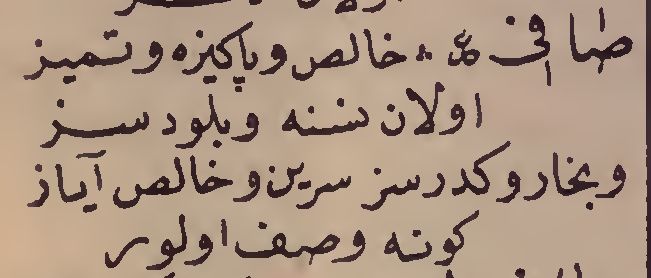 صافى ع خالص و پاكيزه و تميز
اولان سنه و بلودسز
و بخار و كدرسز سرين و خالص آياز
كونه وصف اولور